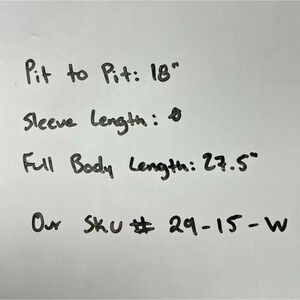 Pit to Pit: 18"
Sleeve Length: 0
Full Body Length: 27.5"
Our SKU # 29-15-W